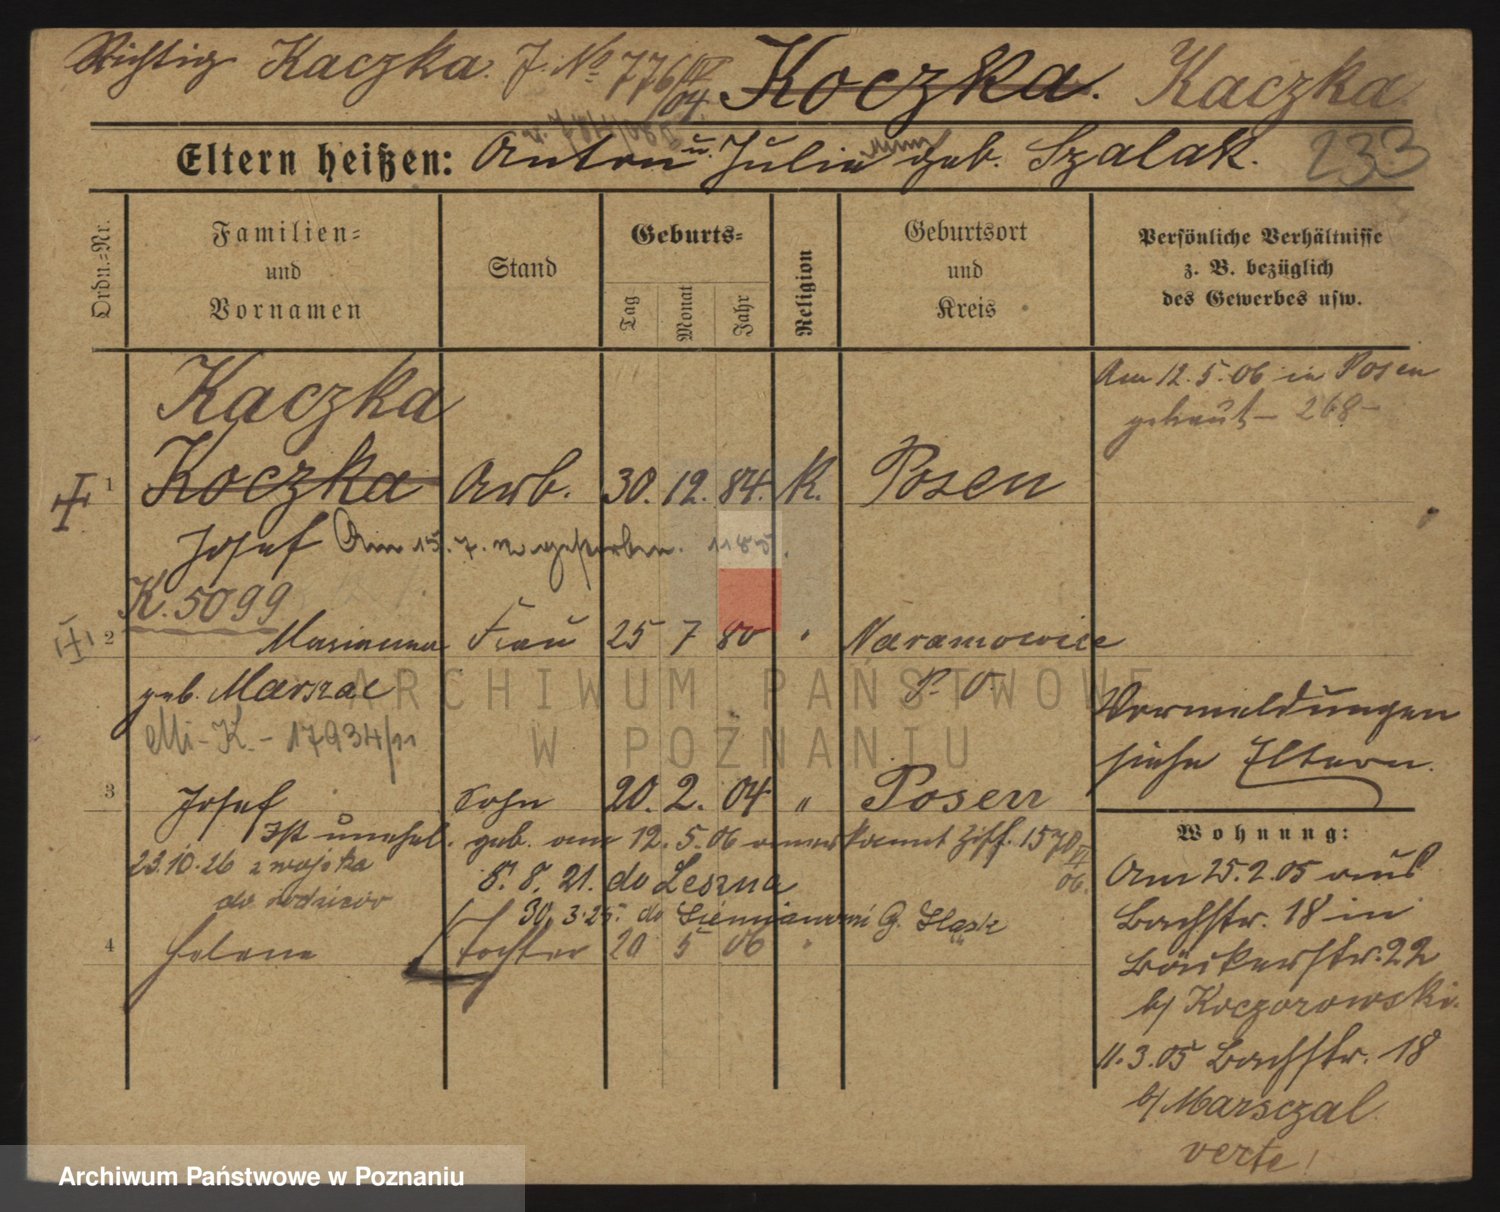 Richtig Kaczka. J. No 776 IV/04 Koczka. Kaczka
Eltern heißen: Anton u. Julia geb. Szalak. 233
Ordn.-Nr.
Familien- und Vornamen
Stand
Geburts-
Tag
Monat
Jahr
Religion
Geburtsort und Kreis
Persönliche Verhältnisse z. B. bezüglich des Gewerbes usw.
Kaczka
Am 12.5.06 in Posen
getraut - 268 -
1 Koczka Arb. 30. 12. 84. K. Posen
Josef Am 15. 7. gestorben.
K. 5099
2 Marianna Frau 25 7 80 " Naramowice
geb. Marszal P. O.
Mi-K. - 17934/11
Vermeldungen
siehe Eltern.
3 Josef Sohn 20. 2. 04 " Posen
Ist unehel. geb. am 12.5.06 anerkannt Ziff. 1570 IV/06.
23.10.26 z wojska
do rodziców
8. 8. 21. do Leszna
30. 3. 25. do Siemianowic G. Śląsk
4 Helene Tochter 20 5 06 "
Wohnung:
Am 25.2.05 aus
Bachstr. 18 in
Bäckerstr. 22
b/ Koczorowski.
11.3.05 Bachstr. 18
b/ Marsczal.
verte!
ARCHIWUM PAŃSTWOWE
W POZNANIU
Archiwum Państwowe w Poznaniu